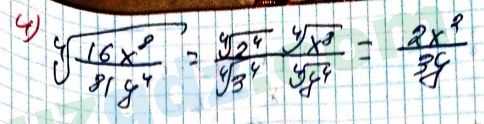 4) ∜(16x⁸/81y⁴) = (∜2⁴ ∜x⁸)/(∜3⁴ ∜y⁴) = 2x²/3y